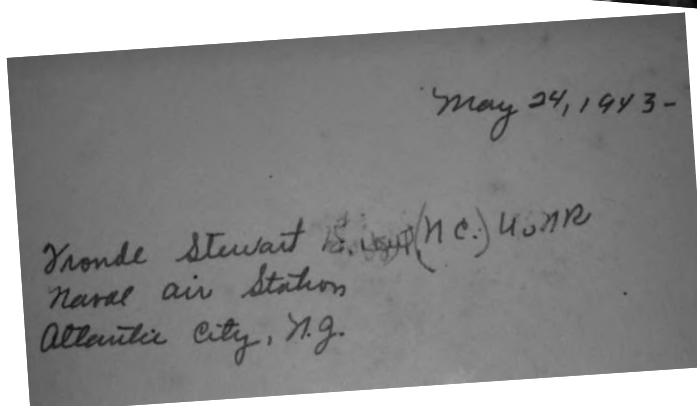 May 24, 1943-
Vronde Stewart (NC.) U.S.N.R
Naval air Station
Atlantic City, N.J.